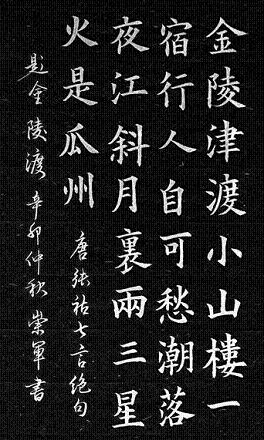 金陵津渡小山樓一
宿行人自可愁潮落
夜江斜月裏兩三星
火是瓜州
唐張祜七言絕句
題金陵渡辛卯仲秋崇軍書